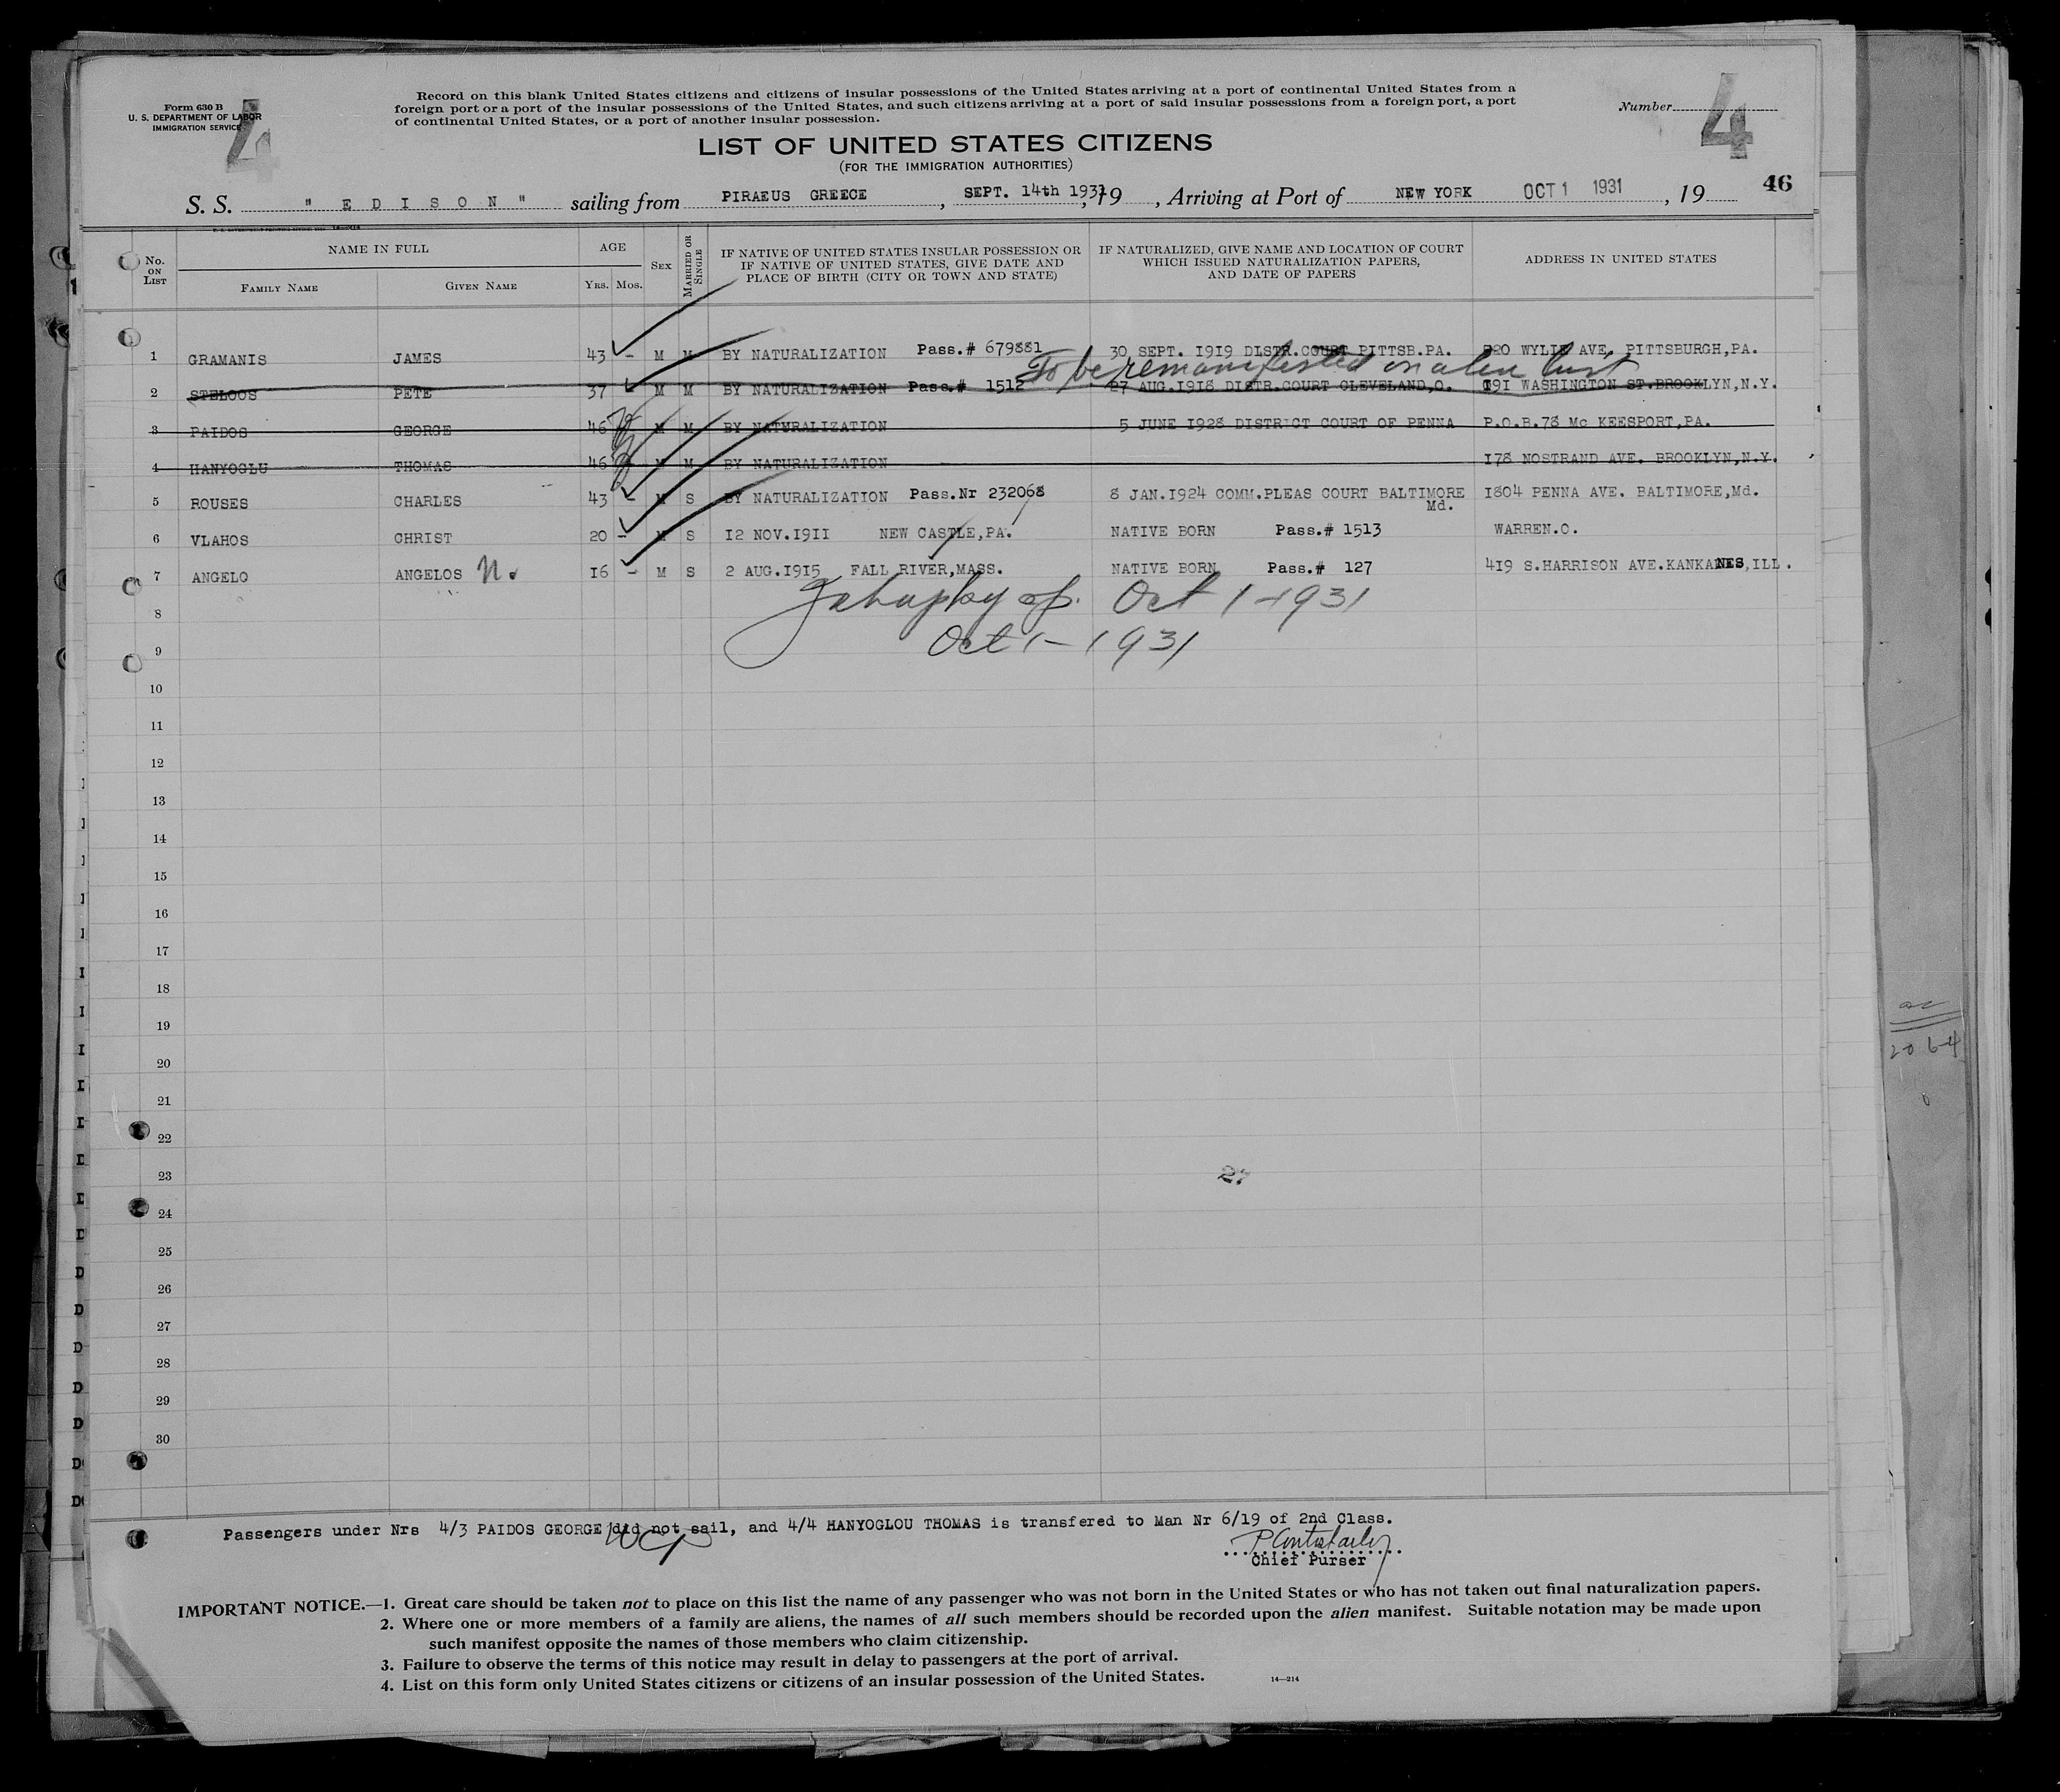 Form 630 B
U. S. DEPARTMENT OF LABOR
IMMIGRATION SERVICE
4
Record on this blank United States citizens and citizens of insular possessions of the United States arriving at a port of continental United States from a
foreign port or a port of the insular possessions of the United States, and such citizens arriving at a port of said insular possessions from a foreign port, a port
of continental United States, or a port of another insular possession.
Number
4
LIST OF UNITED STATES CITIZENS
(FOR THE IMMIGRATION AUTHORITIES)
46
S. S. " E D I S O N " sailing from PIRAEUS GREECE , SEPT. 14th 1931, 19 , Arriving at Port of NEW YORK OCT 1 1931 , 19
No. ON LIST
NAME IN FULL
FAMILY NAME
GIVEN NAME
AGE
YRS. MOS.
SEX
MARRIED OR SINGLE
IF NATIVE OF UNITED STATES INSULAR POSSESSION OR
IF NATIVE OF UNITED STATES, GIVE DATE AND
PLACE OF BIRTH (CITY OR TOWN AND STATE)
IF NATURALIZED, GIVE NAME AND LOCATION OF COURT
WHICH ISSUED NATURALIZATION PAPERS,
AND DATE OF PAPERS
ADDRESS IN UNITED STATES
1 GRAMANIS JAMES 43 - M M BY NATURALIZATION Pass.# 679881 30 SEPT. 1919 DISTR.COURT PITTSB.PA. 720 WYLIE AVE, PITTSBURGH,PA.
To be remanifested on alien list
2 STELOOS PETE 37 M M BY NATURALIZATION Pass.# 1512 27 AUG.1918 DISTR.COURT CLEVELAND,O. 191 WASHINGTON ST.BROOKLYN,N.Y.
3 PAIDOS GEORGE 46 M M BY NATURALIZATION 5 JUNE 1928 DISTRICT COURT OF PENNA P.O.B.78 Mc KEESPORT,PA.
4 HANYOGLU THOMAS 46 M M BY NATURALIZATION 178 NOSTRAND AVE. BROOKLYN,N.Y.
5 ROUSES CHARLES 43 - M S BY NATURALIZATION Pass.Nr 232068 8 JAN.1924 COMM.PLEAS COURT BALTIMORE Md. 1804 PENNA AVE. BALTIMORE,Md.
6 VLAHOS CHRIST 20 - M S 12 NOV.1911 NEW CASTLE,PA. NATIVE BORN Pass.# 1513 WARREN.O.
7 ANGELO ANGELOS N. 16 - M S 2 AUG.1915 FALL RIVER,MASS. NATIVE BORN Pass.# 127 419 S.HARRISON AVE.KANKANES,ILL.
8 Oct 1-1931
9 Oct 1-1931
10
11
12
13
14
15
16
17
18
19
20
21
22
23
27
24
25
26
27
28
29
30
2064
Passengers under Nrs 4/3 PAIDOS GEORGE did not sail, and 4/4 HANYOGLOU THOMAS is transfered to Man Nr 6/19 of 2nd Class.
Chief Purser
IMPORTANT NOTICE.—1. Great care should be taken not to place on this list the name of any passenger who was not born in the United States or who has not taken out final naturalization papers.
2. Where one or more members of a family are aliens, the names of all such members should be recorded upon the alien manifest. Suitable notation may be made upon
such manifest opposite the names of those members who claim citizenship.
3. Failure to observe the terms of this notice may result in delay to passengers at the port of arrival.
4. List on this form only United States citizens or citizens of an insular possession of the United States.
14—214